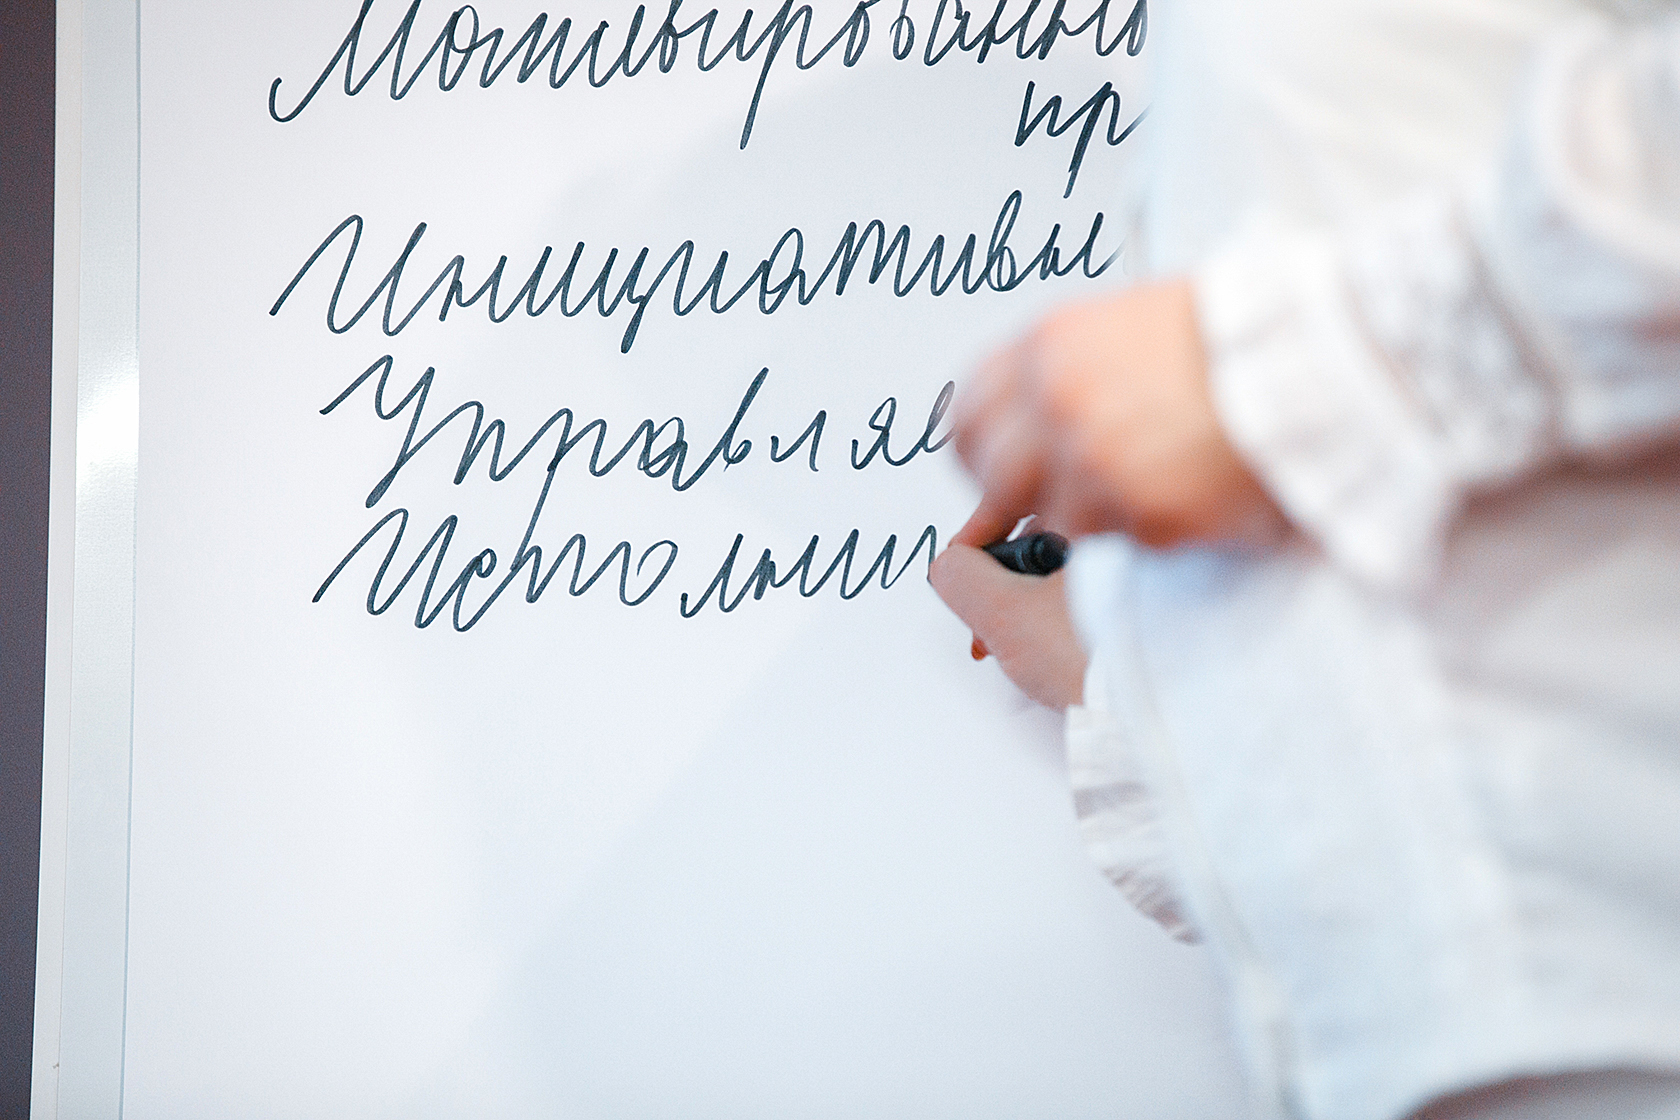 Мотивированны
пр
Инициативны
Управляе
Исполни